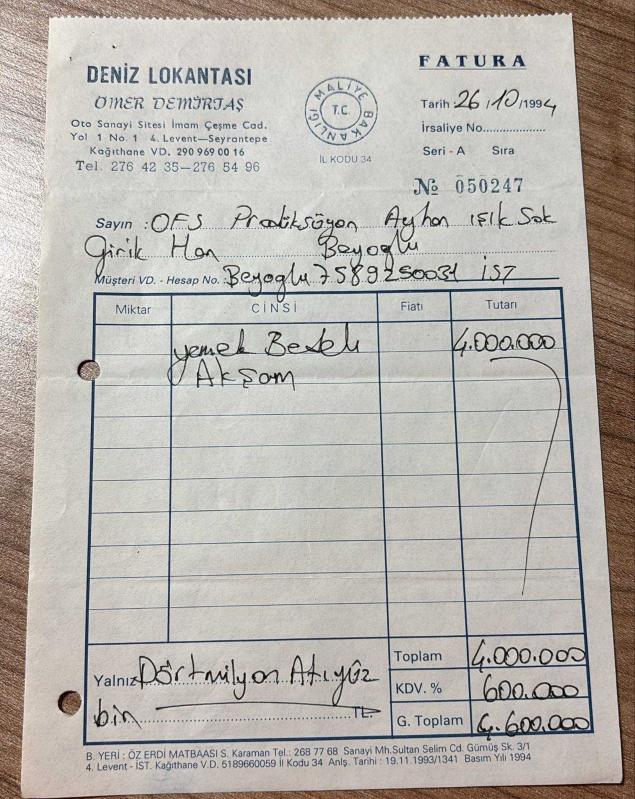 FATURA
DENİZ LOKANTASI
ÖMER DEMİRTAŞ
Oto Sanayi Sitesi İmam Çeşme Cad.
Yol 1 No. 1 4. Levent-Seyrantepe
Kağıthane VD. 290 969 00 16
Tel. 276 42 35-276 54 96
T.C. MALİYE BAKANLIĞI
İL KODU 34
Tarih 26/10/1994
İrsaliye No.
Seri - A Sıra
No 050247
Sayın : OFS Prodüksüyon Ayhan ışık Sok
Girik Han Beyoglu
Müşteri VD. - Hesap No. : Beyoglu 7589250031 İST
Miktar CİNSİ Fiatı Tutarı
yemek Bedeli 4.000.000
Akşam
Toplam 4.000.000
Yalnız Dörtmilyon Atıyüz
KDV. % 600.000
bin TL.
G. Toplam 4.600.000
B. YERİ : ÖZ ERDİ MATBAASI S. Karaman Tel.: 268 77 68 Sanayi Mh.Sultan Selim Cd. Gümüş Sk. 3/1
4. Levent - İST. Kağıthane V.D. 5189660059 İl Kodu 34 Anlş. Tarihi : 19.11.1993/1341 Basım Yılı 1994